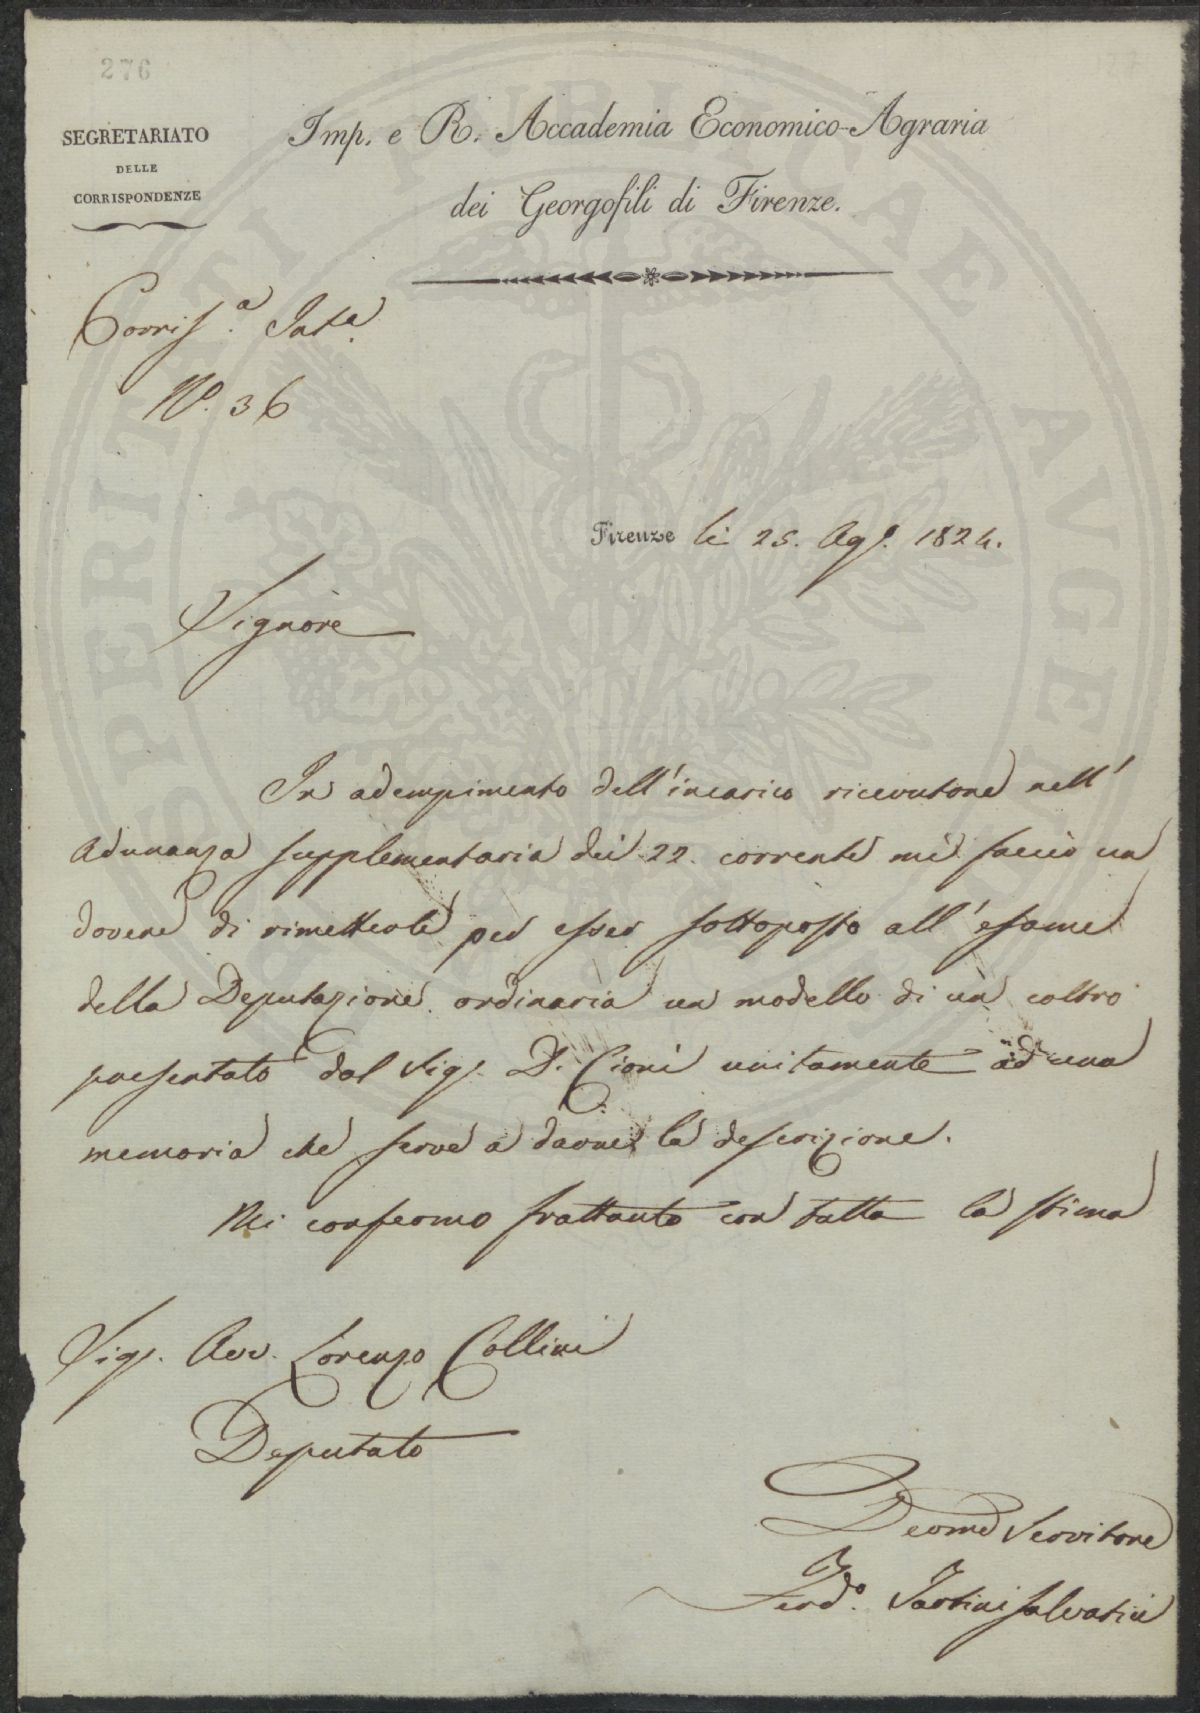 276
SEGRETARIATO
DELLE
CORRISPONDENZE
Imp. e R. Accademia Economico-Agraria
dei Georgofili di Firenze.
Corris.a Int.a
No. 36
Firenze li 25. Ag. 1824.
Signore
In adempimento dell'incarico ricevutone nell'
Adunanza supplementaria dei 22. corrente mi faccio un
dovere di rimetterle per esser sottoposto all'esame
della Deputazione ordinaria un modello di un coltro
presentato dal Sig. D. Cioni unitamente ad una
memoria che serve a darne la descrizione.
Mi confermo frattanto con tutta la stima
Sig. Avv. Lorenzo Collini
Deputato
Devmo Servitore
Ferd.o Tartini Salvatici
PROSPERITATI PUBLICAE AVGENDAE